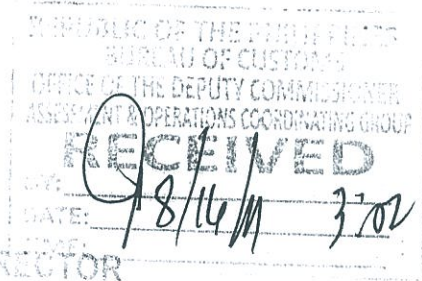 REPUBLIC OF THE PHILIPPINES
BUREAU OF CUSTOMS
OFFICE OF THE DEPUTY COMMISSIONER
ASSESSMENT & OPERATIONS COORDINATING GROUP
RECEIVED
BY:
DATE: 8/16/11 3:02
TIME:
RECTOR